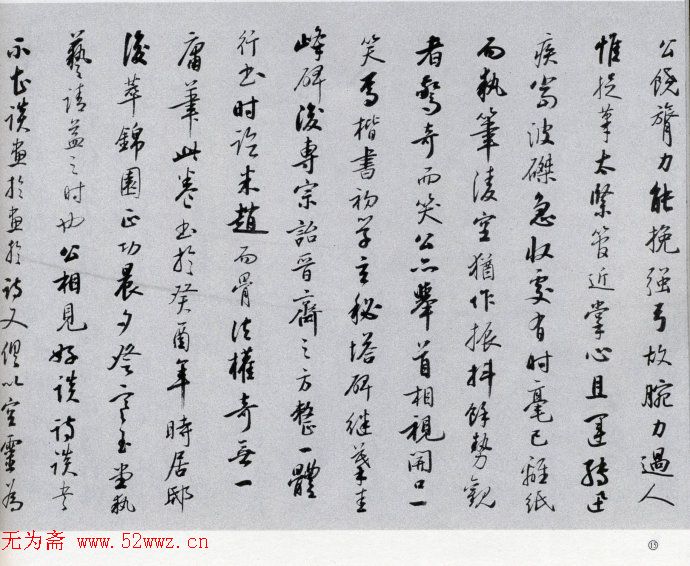 公饒膂力能挽强弓故腕力過人
惟捉筆太緊管近掌心且運轉迅
疾當波磔急收處有時毫已離紙
而執筆淩空猶作振抖餘勢觀
者驚奇而笑公亦舉首相視開口一
笑焉楷書初學玄秘塔碑繼摹圭
峰碑後專宗詒晉齋之方整一體
行書時記米趙而骨法權奇無一
庸筆此卷書於癸酉年時居邸
後萃錦園正功晨夕登寒玉堂執
藝請益之時也公相見好談詩談書
不甚談畫於畫於詩又俱以空靈為
无为斋 www.52wwz.cn
⑮